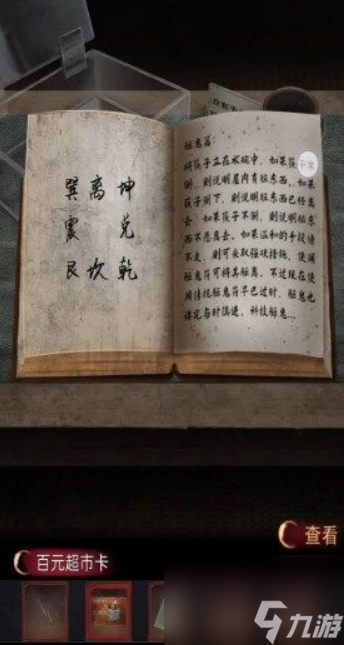 自制
巽 离 坤
震 兑
艮 坎 乾
驱鬼篇:
将筷子立在水碗中,如果筷子
倒,则说明屋内有脏东西,如果
筷子倒下,则说明脏东西已经离
去,如果筷子不倒,则说明脏东
西不愿离去。如果温和的手段请
不走,则可采取强硬措施,使用
驱鬼符可将其驱离。不过现在使
用传统驱鬼符早已过时,驱鬼也
讲究与时俱进,科技驱鬼…
查看
百元超市卡
九游